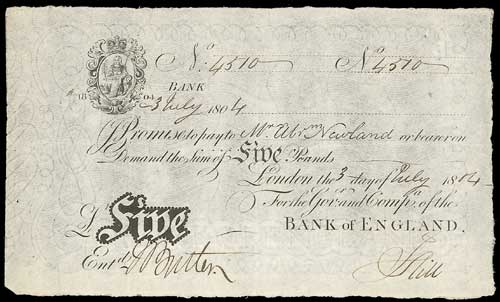 No. 4510 No. 4510
BANK
18 04
3 July 1804
I Promise to pay to Mr. Abm. Newland or bearer on
Demand the Sum of Five Pounds
London the 3 day of July 1804
For the Govr. and Compa. of the
BANK of ENGLAND.
£ Five
Entd. Hill